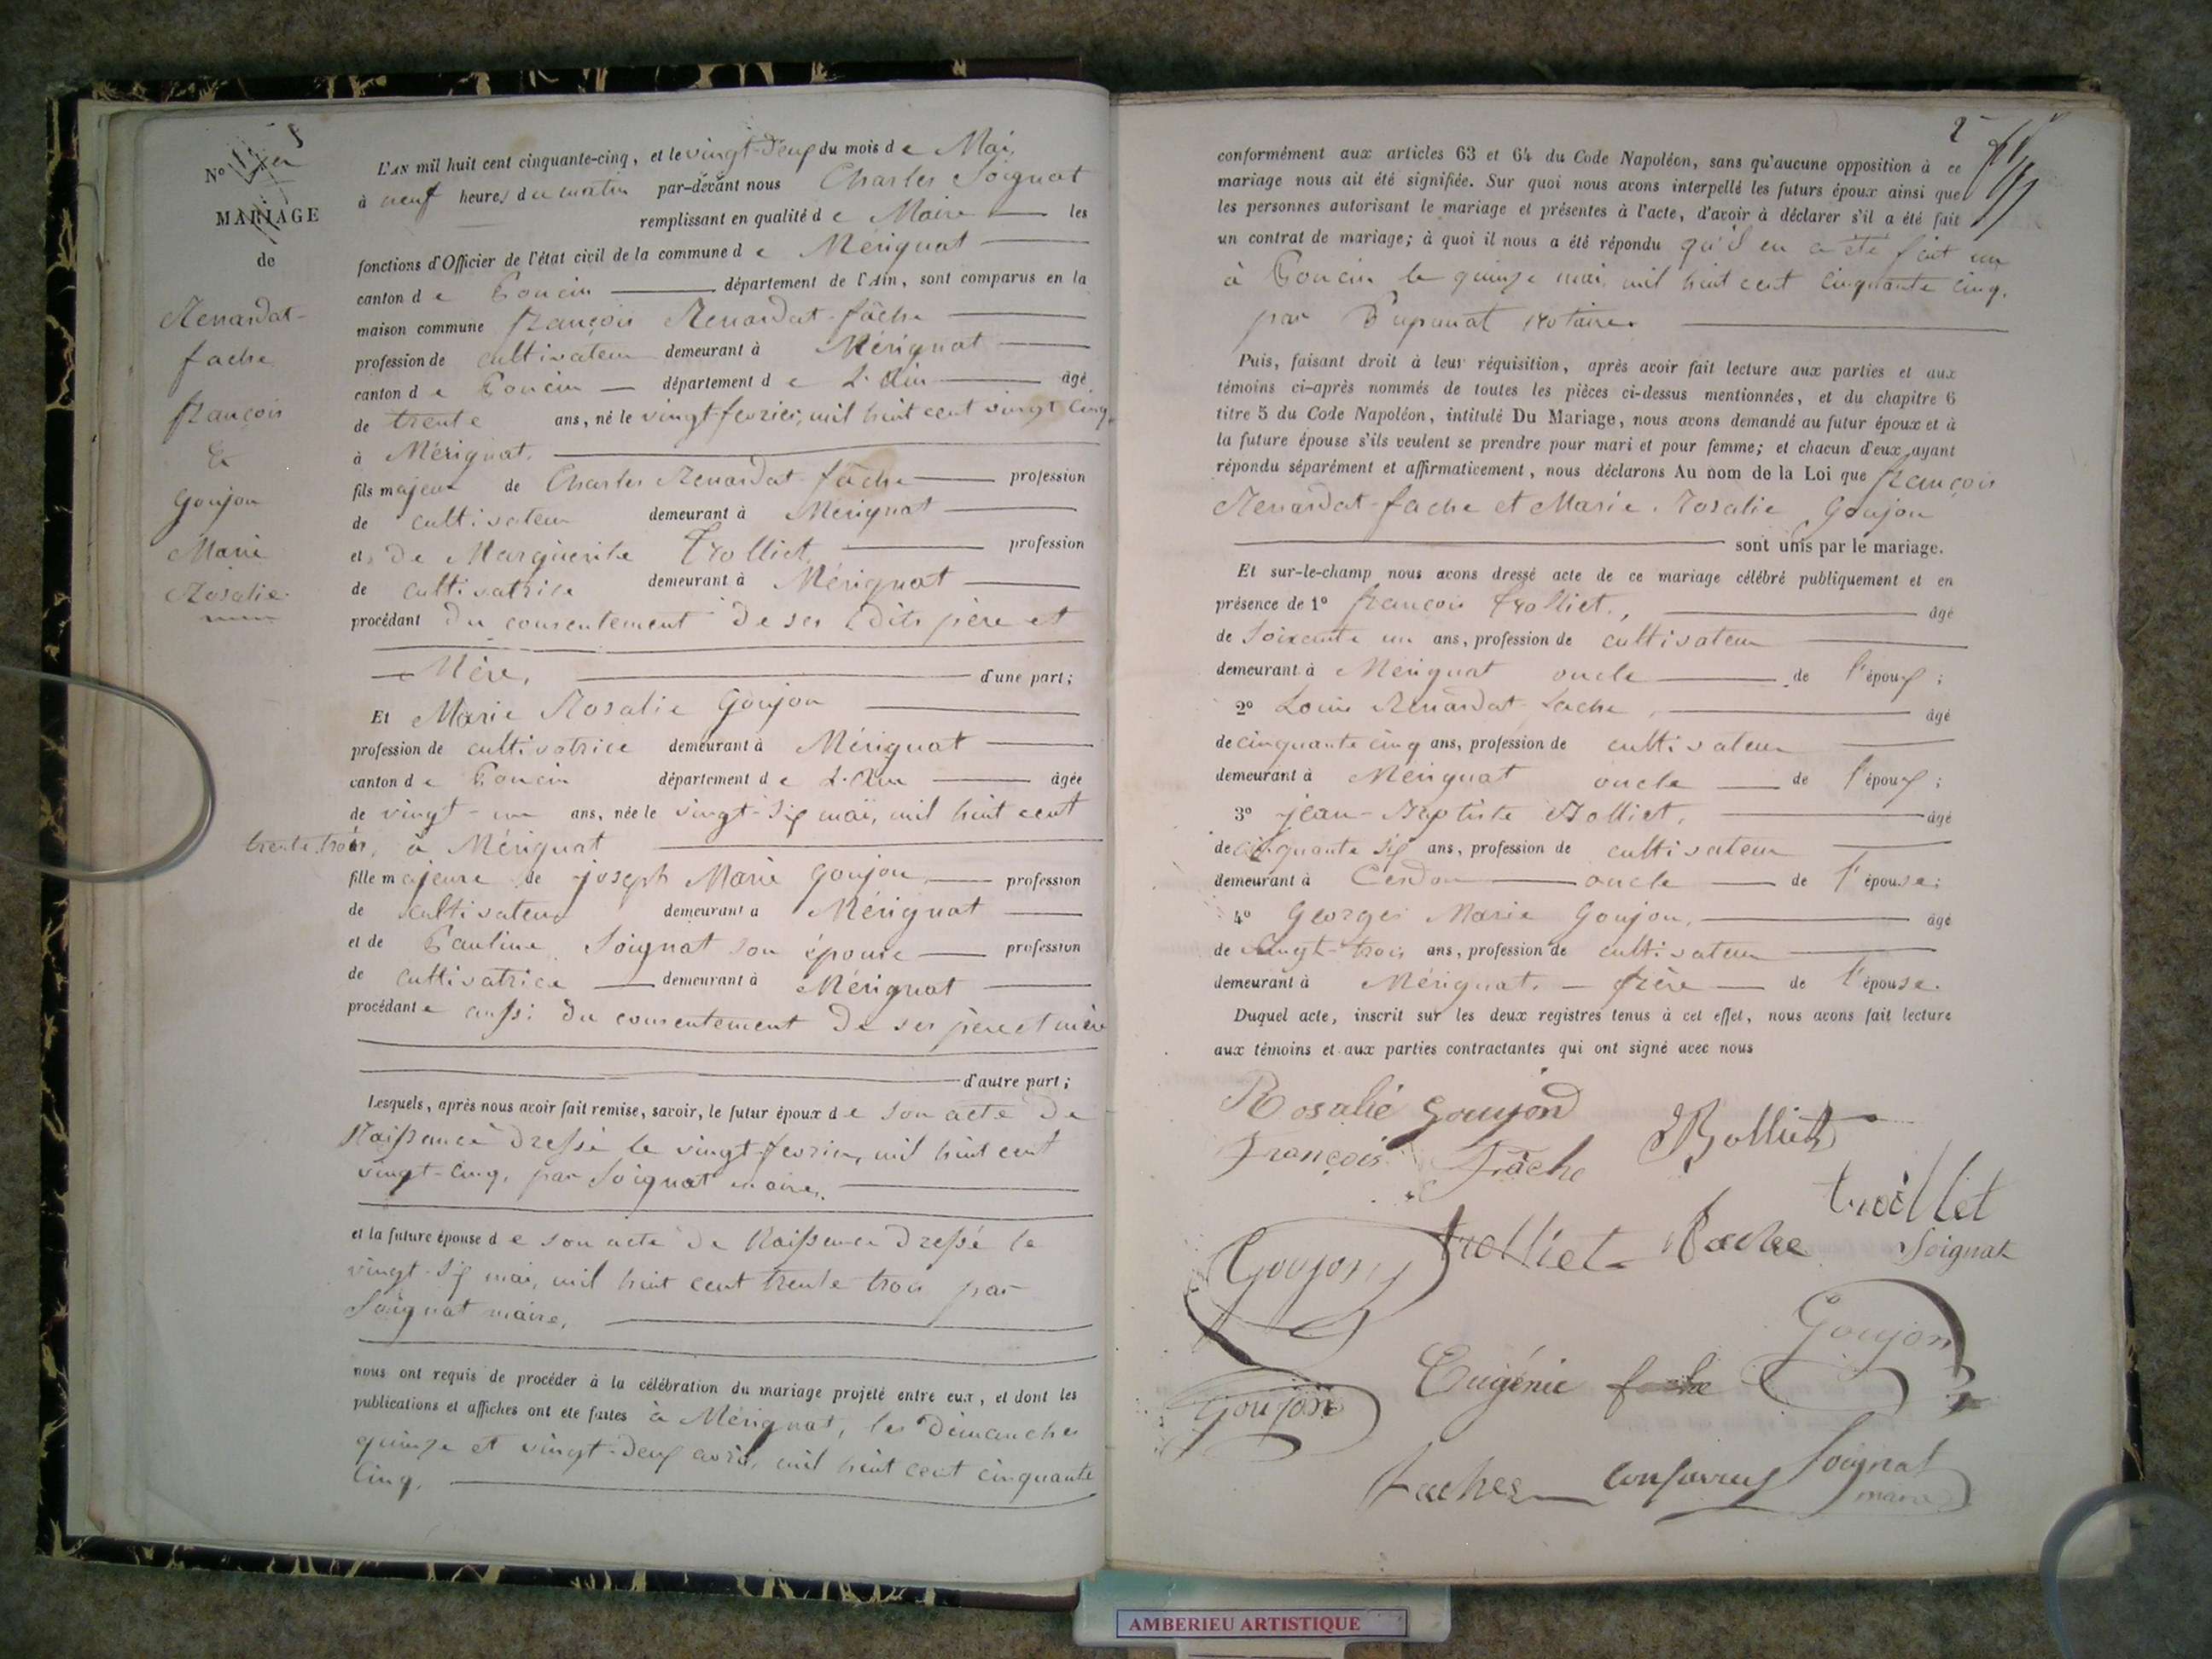 No 1er
MARIAGE
de
Renardat-
fache
François
&
Goujon
Marie
Rosalie
L'AN mil huit cent cinquante-cinq, et le vingt-deux du mois de Mai,
à neuf heures du matin par-devant nous Charles Soignat
remplissant en qualité de Maire les
fonctions d'Officier de l'état civil de la commune de Mérignat
canton de Poncin département de l'Ain, sont comparus en la
maison commune François Renardat-fâche
profession de cultivateur demeurant à Mérignat
canton de Poncin département de L'Ain âgé
de trente ans, né le vingt fevrier, mil huit cent vingt cinq,
à Mérignat.
fils majeur de Charles Renardat-fâche profession
de cultivateur demeurant à Mérignat
et de Marguerite Trolliet, profession
de cultivatrice demeurant à Mérignat
procédant du consentement de ses dits père et
Mère, d'une part;
Et Marie Rosalie Goujon
profession de cultivatrice demeurant à Mérignat
canton de Poncin département de L'Ain âgée
de vingt-un ans, née le vingt-six mai, mil huit cent
trente trois, à Mérignat
fille majeure de joseph Marie Goujon profession
de cultivateur demeurant à Mérignat
et de Pauline Soignat son épouse profession
de cultivatrice demeurant à Mérignat
procédante aussi du consentement de ses père et mère
d'autre part;
Lesquels, après nous avoir fait remise, savoir, le futur époux de son acte de
Naissance dressé le vingt fevrier, mil huit cent
vingt-cinq, par Soignat maire,
et la future épouse de son acte de Naissance dressé le
vingt-six mai, mil huit cent trente trois par
Soignat maire,
nous ont requis de procéder à la célébration du mariage projeté entre eux, et dont les
publications et affiches ont été faites à Mérignat, les Dimanches
quinze et vingt-deux avril, mil huit cent cinquante
cinq,
2
conformément aux articles 63 et 64 du Code Napoléon, sans qu'aucune opposition à ce
mariage nous ait été signifiée. Sur quoi nous avons interpellé les futurs époux ainsi que
les personnes autorisant le mariage et présentes à l'acte, d'avoir à déclarer s'il a été fait
un contrat de mariage; à quoi il nous a été répondu qu'il en a été fait un
à Poncin le quinze mai, mil huit cent cinquante cinq,
par notaire.
Puis, faisant droit à leur réquisition, après avoir fait lecture aux parties et aux
témoins ci-après nommés de toutes les pièces ci-dessus mentionnées, et du chapitre 6
titre 5 du Code Napoléon, intitulé Du Mariage, nous avons demandé au futur époux et à
la future épouse s'ils veulent se prendre pour mari et pour femme; et chacun d'eux ayant
répondu séparément et affirmativement, nous déclarons Au nom de la Loi que François
Renardat-fache et Marie Rosalie Goujon
sont unis par le mariage.
Et sur-le-champ nous avons dressé acte de ce mariage célébré publiquement et en
présence de 1o François Trolliet, âgé
de Soixante un ans, profession de cultivateur
demeurant à Mérignat oncle de l'époux;
2o Louis Renardat-fache, âgé
de cinquante cinq ans, profession de cultivateur
demeurant à Mérignat oncle de l'époux;
3o jean-Baptiste Bolliet, âgé
de cinquante six ans, profession de cultivateur
demeurant à Cerdon oncle de l'épouse;
4o Georges Marie Goujon, âgé
de Vingt-trois ans, profession de cultivateur
demeurant à Mérignat, frère de l'épouse.
Duquel acte, inscrit sur les deux registres tenus à cet effet, nous avons fait lecture
aux témoins et aux parties contractantes qui ont signé avec nous
Rosalie Goujon
François Fâche Bolliet
trolliet
Goujon trolliet Fache Soignat
Goujon
Goujon Eugénie fache
faches Soignat
maire
AMBERIEU ARTISTIQUE